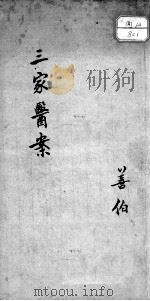 三家醫案
善伯
研狗
mtoou.info.com